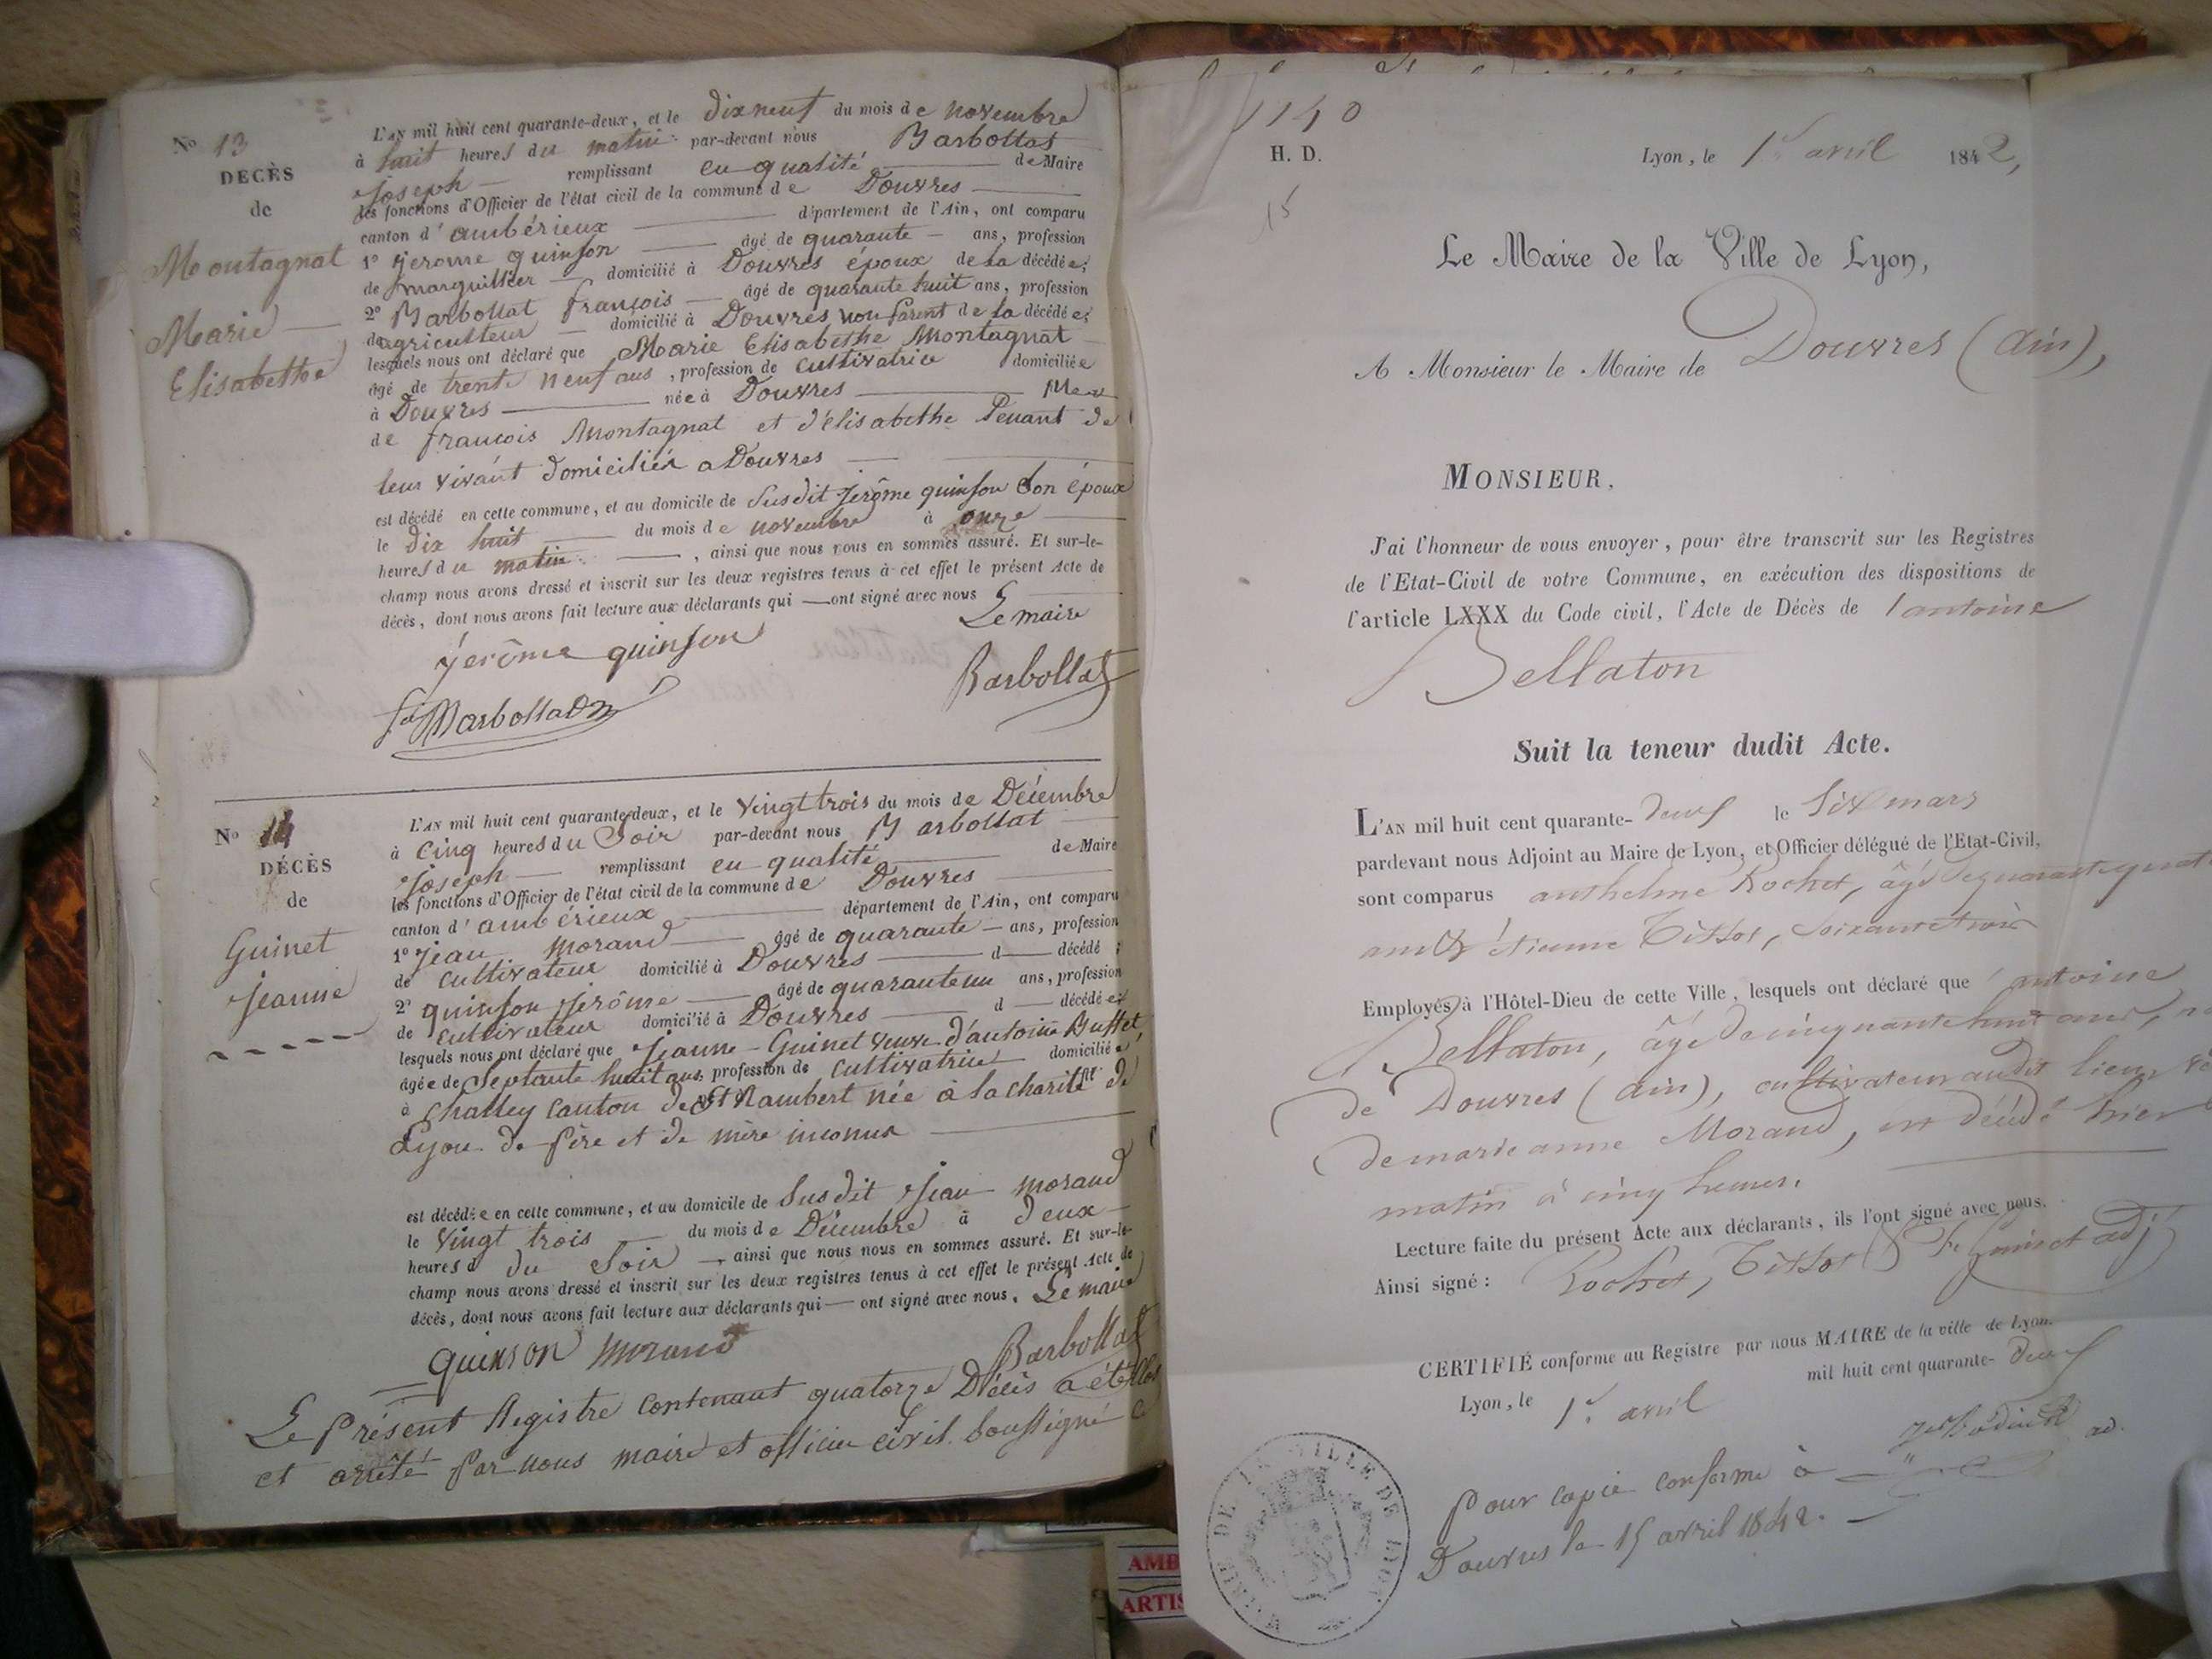 N° 13
DECÈS
de
Montagnat
Marie
Elisabethe
L'AN mil huit cent quarante-deux, et le dix neuf du mois de novembre
à huit heures du matin par-devant nous Barbollat
Joseph remplissant en qualité de Maire
les fonctions d'Officier de l'état civil de la commune de Douvres
canton d'ambérieux département de l'Ain, ont comparu
1° Jerome quinson âgé de quarante ans, profession
de marguillier domicilié à Douvres époux de la décédée;
2° Barbollat françois âgé de quarante huit ans, profession
d'agriculteur domicilié à Douvres non parent de la décédée;
lesquels nous ont déclaré que Marie Elisabethe Montagnat
âgé de trente neuf ans, profession de cultivatrice domiciliée
à Douvres née à Douvres
de françois Montagnat et d'élisabethe de
leur vivant domiciliés a Douvres
est décédé en cette commune, et au domicile de Susdit Jerôme quinson Son époux
le dix huit du mois de novembre à onze
heures du matin, ainsi que nous nous en sommes assuré. Et sur-le-
champ nous avons dressé et inscrit sur les deux registres tenus à cet effet le présent Acte de
décès, dont nous avons fait lecture aux déclarants qui ont signé avec nous
Le maire
jerôme quinson
Barbollat
N° 14
DÉCÈS
de
Guinet
Jeanne
L'AN mil huit cent quarante-deux, et le vingt trois du mois de Décembre
à cinq heures du Soir par-devant nous Barbollat
Joseph remplissant en qualité de Maire
les fonctions d'Officier de l'état civil de la commune de Douvres
canton d'ambérieux département de l'Ain, ont comparu
1° Jean Morand âgé de quarante ans, profession
de cultivateur domicilié à Douvres d décédé;
2° quinson Jerôme âgé de quarante un ans, profession
de cultivateur domicilié à Douvres d décédée;
lesquels nous ont déclaré que Jeanne Guinet veuve d'antoine Buffet
âgée de Septante huit ans, profession de cultivatrice domiciliée
à Challey canton de St Rambert née à la charité de
Lyon de père et de mère inconus
est décédée en cette commune, et au domicile de Susdit Jean morand
le vingt trois du mois de Décembre à deux
heures du Soir, ainsi que nous nous en sommes assuré. Et sur-le-
champ nous avons dressé et inscrit sur les deux registres tenus à cet effet le présent Acte de
décès, dont nous avons fait lecture aux déclarants qui ont signé avec nous. Le maire
quinson morand Barbollat
Le Présent Registre contenant quatorze Décès a été clos
et arrêté par nous maire et officier civil soussigné
1140
H. D.
15
Lyon, le 1er avril 1842,
Le Maire de la Ville de Lyon,
A Monsieur le Maire de Douvres (ain),
MONSIEUR,
J'ai l'honneur de vous envoyer, pour être transcrit sur les Registres
de l'Etat-Civil de votre Commune, en exécution des dispositions de
l'article LXXX du Code civil, l'Acte de Décès de antoine
Bellaton
Suit la teneur dudit Acte.
L'AN mil huit cent quarante-deux le six mars
pardevant nous Adjoint au Maire de Lyon, et Officier délégué de l'Etat-Civil,
sont comparus anthelme Rochet, âgé de quarante quat
ans & étienne Tissot, soixante trois
Employés à l'Hôtel-Dieu de cette Ville, lesquels ont déclaré que antoine
Bellaton, âgé de cinquante huit ans,
de Douvres (ain), cultivateur audit lieu,
de marie anne Morand, est décédé hier
matin à cinq heures.
Lecture faite du présent Acte aux déclarants, ils l'ont signé avec nous.
Ainsi signé: Rochet, Tissot & Guinet adj
CERTIFIÉ conforme au Registre par nous MAIRE de la ville de Lyon.
Lyon, le 1er avril mil huit cent quarante-deux
ad.
MAIRIE DE LA VILLE DE LYON
Pour copie conforme à
Douvres le 15 avril 1842.
AMB
ARTIS